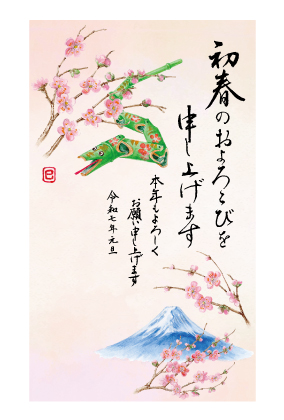 初春のおよろこびを
申し上げます
本年もよろしく
お願い申し上げます
令和七年元旦
巳